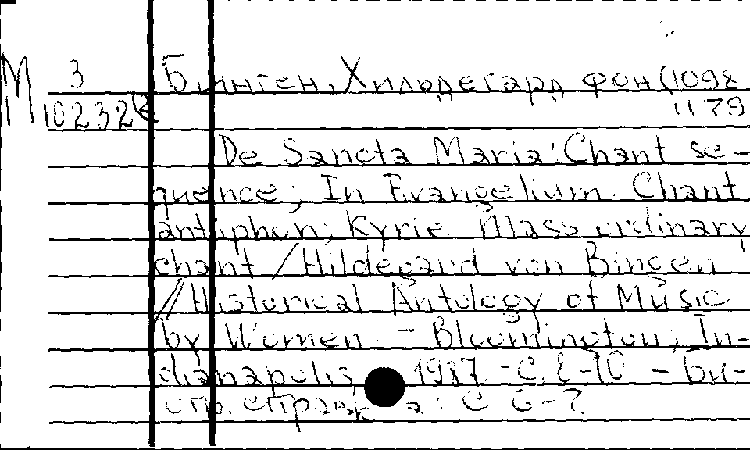 М 3 Бинген, Хильдегард фон (1098
10232к 1179
De Sancta Maria: Chant se-
quence; In Evangelium. Chant
antiphon; Kyrie. Mass ordinary
chant / Hildegard von Bingen
// Historical Antology of Music
by Women. - Bloomington; In-
dianapolis, 1987 - С. 8-10 - Би-
справка: С 6-7